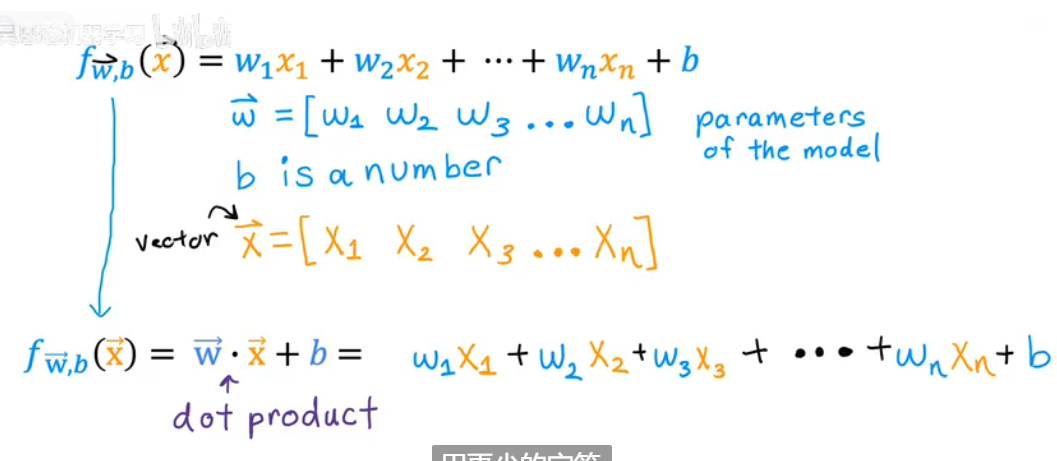 f_{\vec{w},b}(\vec{x}) = w₁x₁ + w₂x₂ + ⋯ + wₙxₙ + b
\vec{w} = [w₁ w₂ w₃ ... wₙ] parameters
of the model
b is a number
vector \vec{x} = [x₁ x₂ x₃ ... xₙ]
f_{\vec{w},b}(\vec{x}) = \vec{w} · \vec{x} + b = w₁x₁ + w₂x₂ + w₃x₃ + ⋯ + wₙxₙ + b
dot product